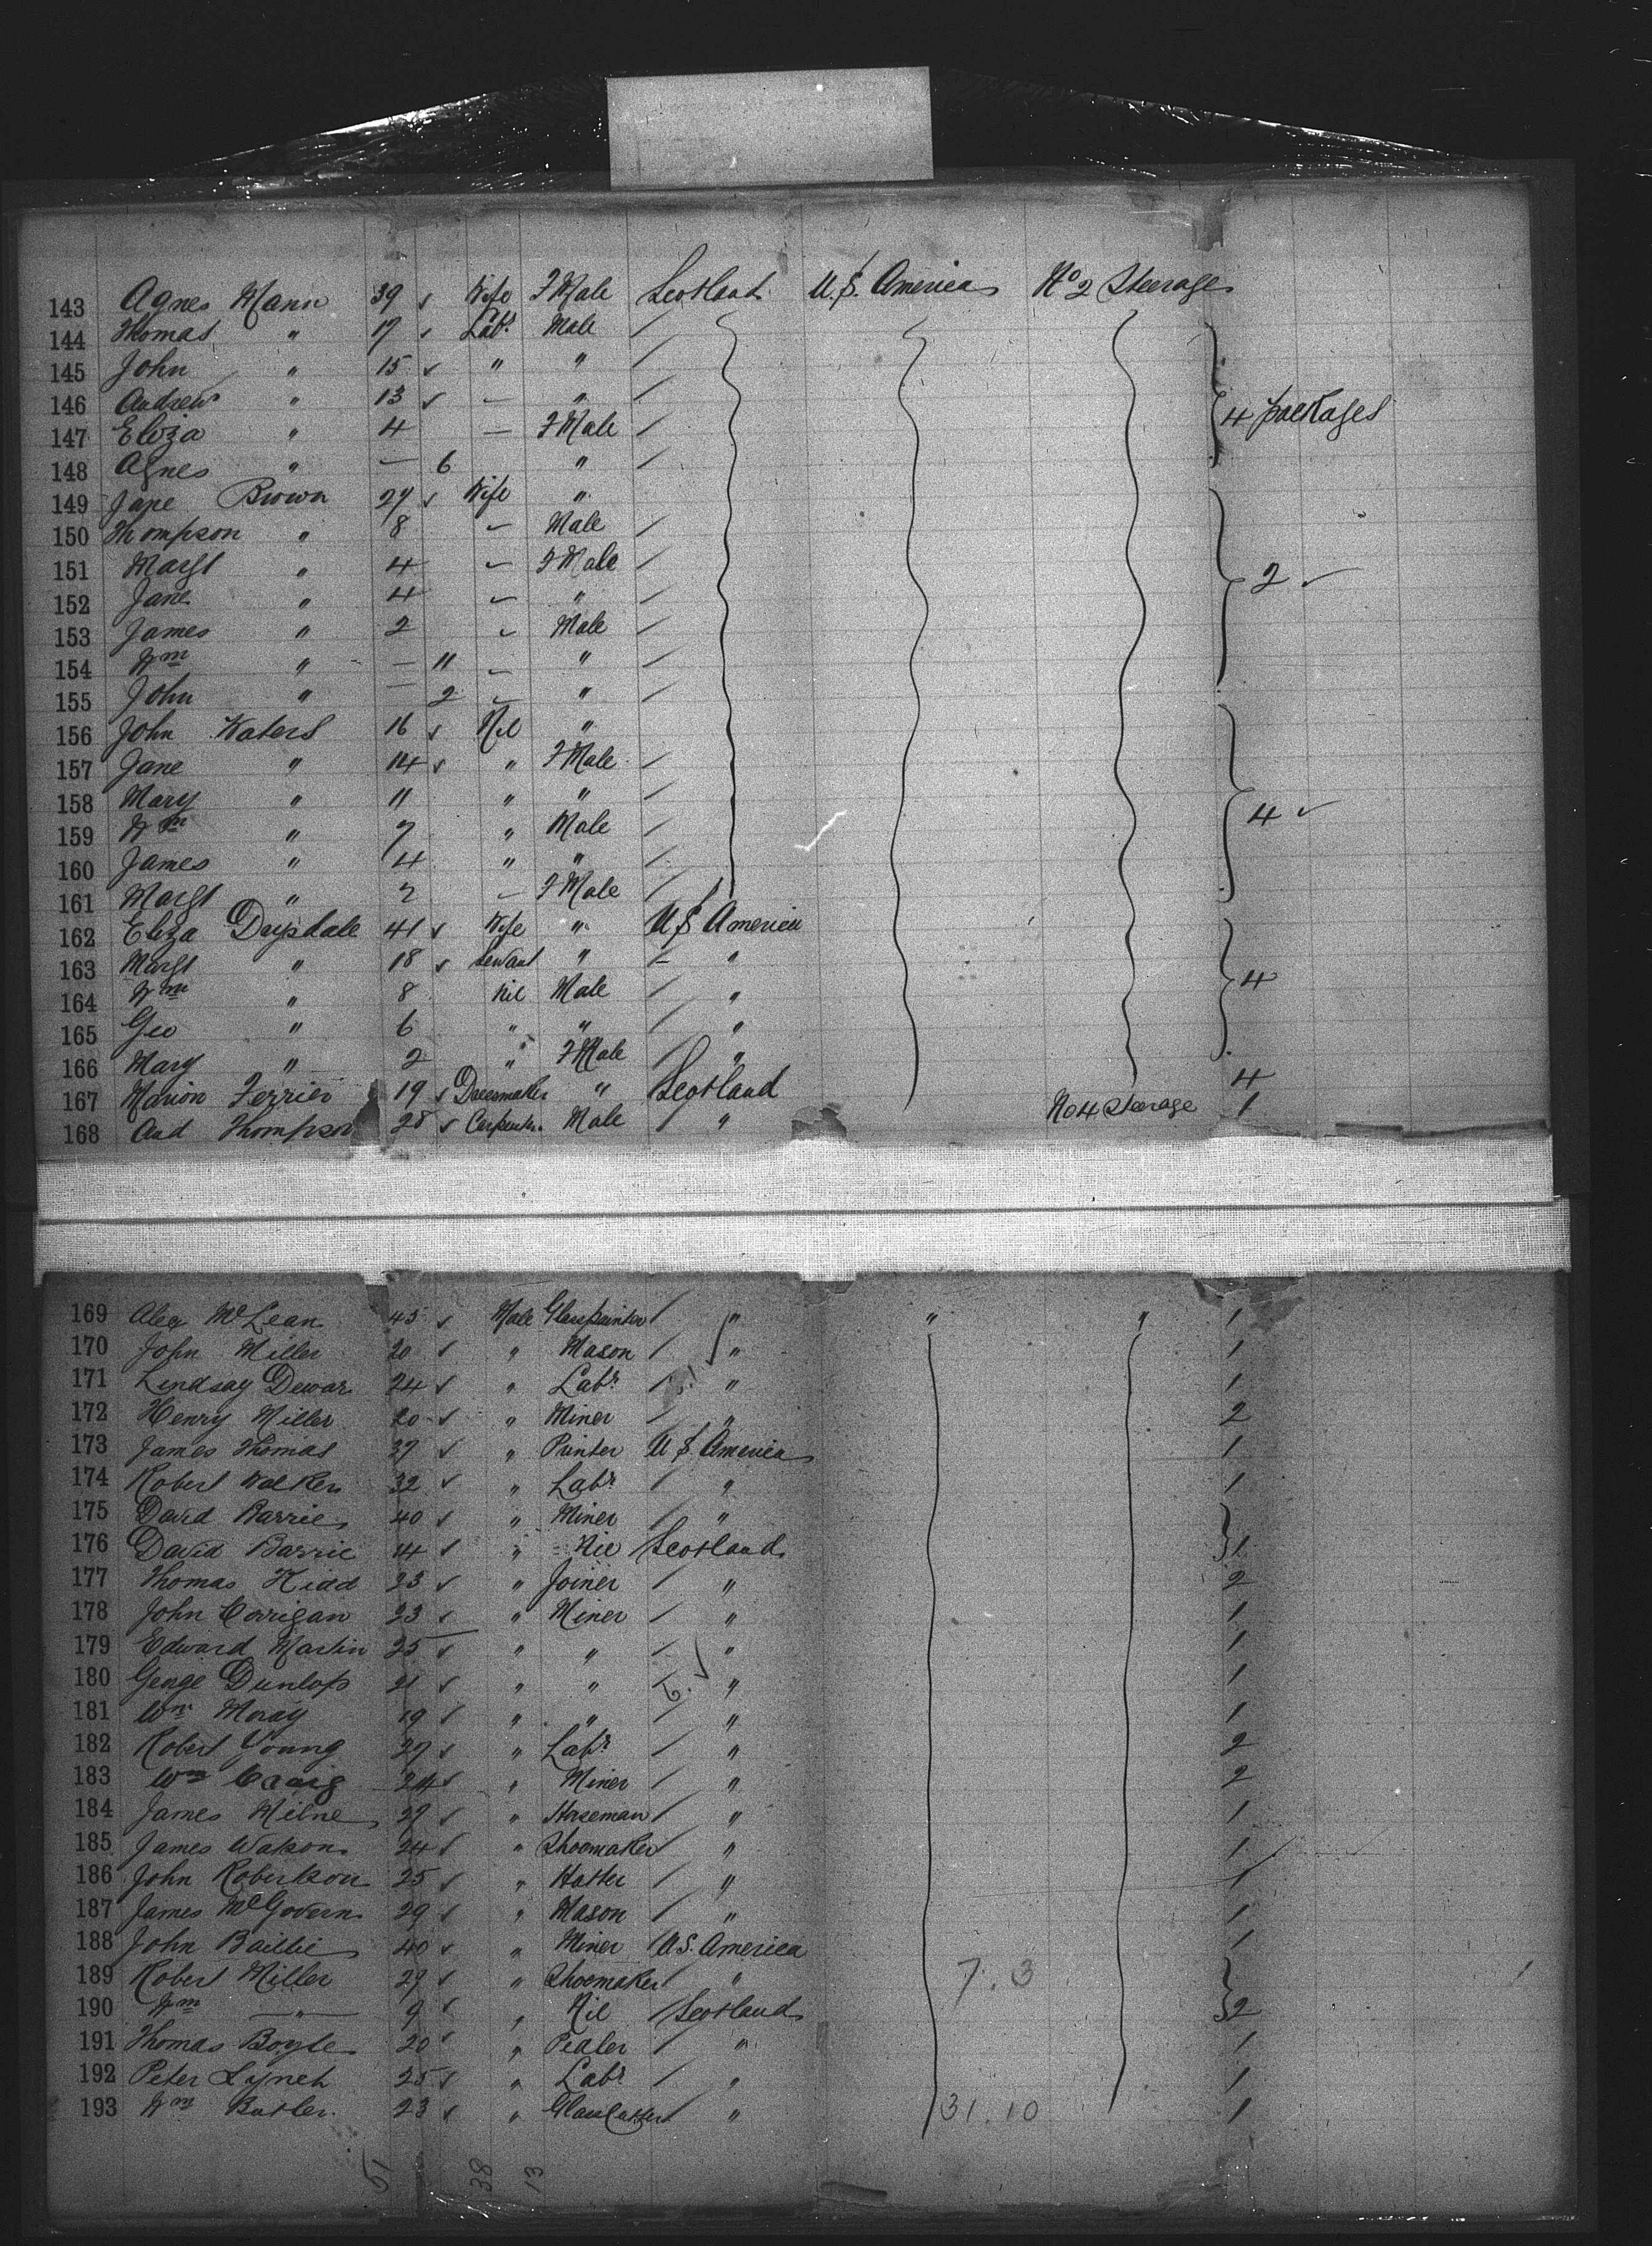 143 Agnes Mann 39 ✓ Wife FMale Scotland U.S. America No 2 Steerage
144 Thomas " 17 ✓ Labr Male /
145 John " 15 ✓ " " /
146 Andrew " 13 ✓ — " / 4 packages
147 Eliza " 4 — FMale /
148 Agnes " — 6 " /
149 Jane Brown 27 ✓ Wife "
150 Thompson " 8 – Male /
151 Margt " 4 – FMale / 2 ✓
152 Jane " 4 – " /
153 James " 2 – Male /
154 Wm " — 11 – " /
155 John " — 2 – " /
156 John Waters 16 ✓ Nil "
157 Jane " 14 ✓ " FMale /
158 Mary " 11 " " / 4 ✓
159 Wm " 7 " Male /
160 James " 4 " " /
161 Margt " 2 – FMale /
162 Eliza Drysdale 41 ✓ Wife " U S America
163 Margt " 18 ✓ Servant " – "
164 Wm " 8 Nil Male / " 4
165 Geo " 6 " " / "
166 Mary " 2 " FMale / "
167 Marion Ferrier 19 ✓ Dressmaker " Scotland 4
168 And Thompson 28 ✓ Carpenter Male / " No 4 Steerage 1
169 Alex McLean 45 ✓ Male Glasspainter / " " " 1
170 John Miller 20 ✓ " Mason / " 1
171 Lindsay Dewar 24 ✓ " Labr / " 1
172 Henry Miller 20 ✓ " Miner / " 2
173 James Thomas 37 ✓ " Printer U S. America 1
174 Robert Walker 32 ✓ " Labr / " 1
175 David Barrie 40 ✓ " Miner / "
176 David Barrie 14 ✓ " Nil Scotland 1
177 Thomas Kidd 23 ✓ " Joiner / " 2
178 John Corrigan 23 ✓ " Miner / " 1
179 Edward Martin 25 ✓ " " / " 1
180 George Dunlop 21 ✓ " " / " 1
181 Wm Moray 19 ✓ " " / " 1
182 Robert Young 27 ✓ " Labr / " 2
183 Wm Craig 24 ✓ " Miner / " 2
184 James Milne 29 ✓ " Horseman / " 1
185 James Watson 24 ✓ " Shoemaker / " 1
186 John Robertson 25 ✓ " Hatter / " 1
187 James McGovern 29 ✓ " Mason / " 1
188 John Baillie 40 ✓ " Miner U.S. America 1
189 Robert Miller 29 ✓ " Shoemaker / " 7.3
190 Wm —"— 9 ✓ " Nil Scotland 2
191 Thomas Boyle 20 ✓ " Pedler / " 1
192 Peter Lynch 25 ✓ " Labr / " 1
193 Wm Butler 23 ✓ " GlassCutter / " 31.10 1
51 38 13